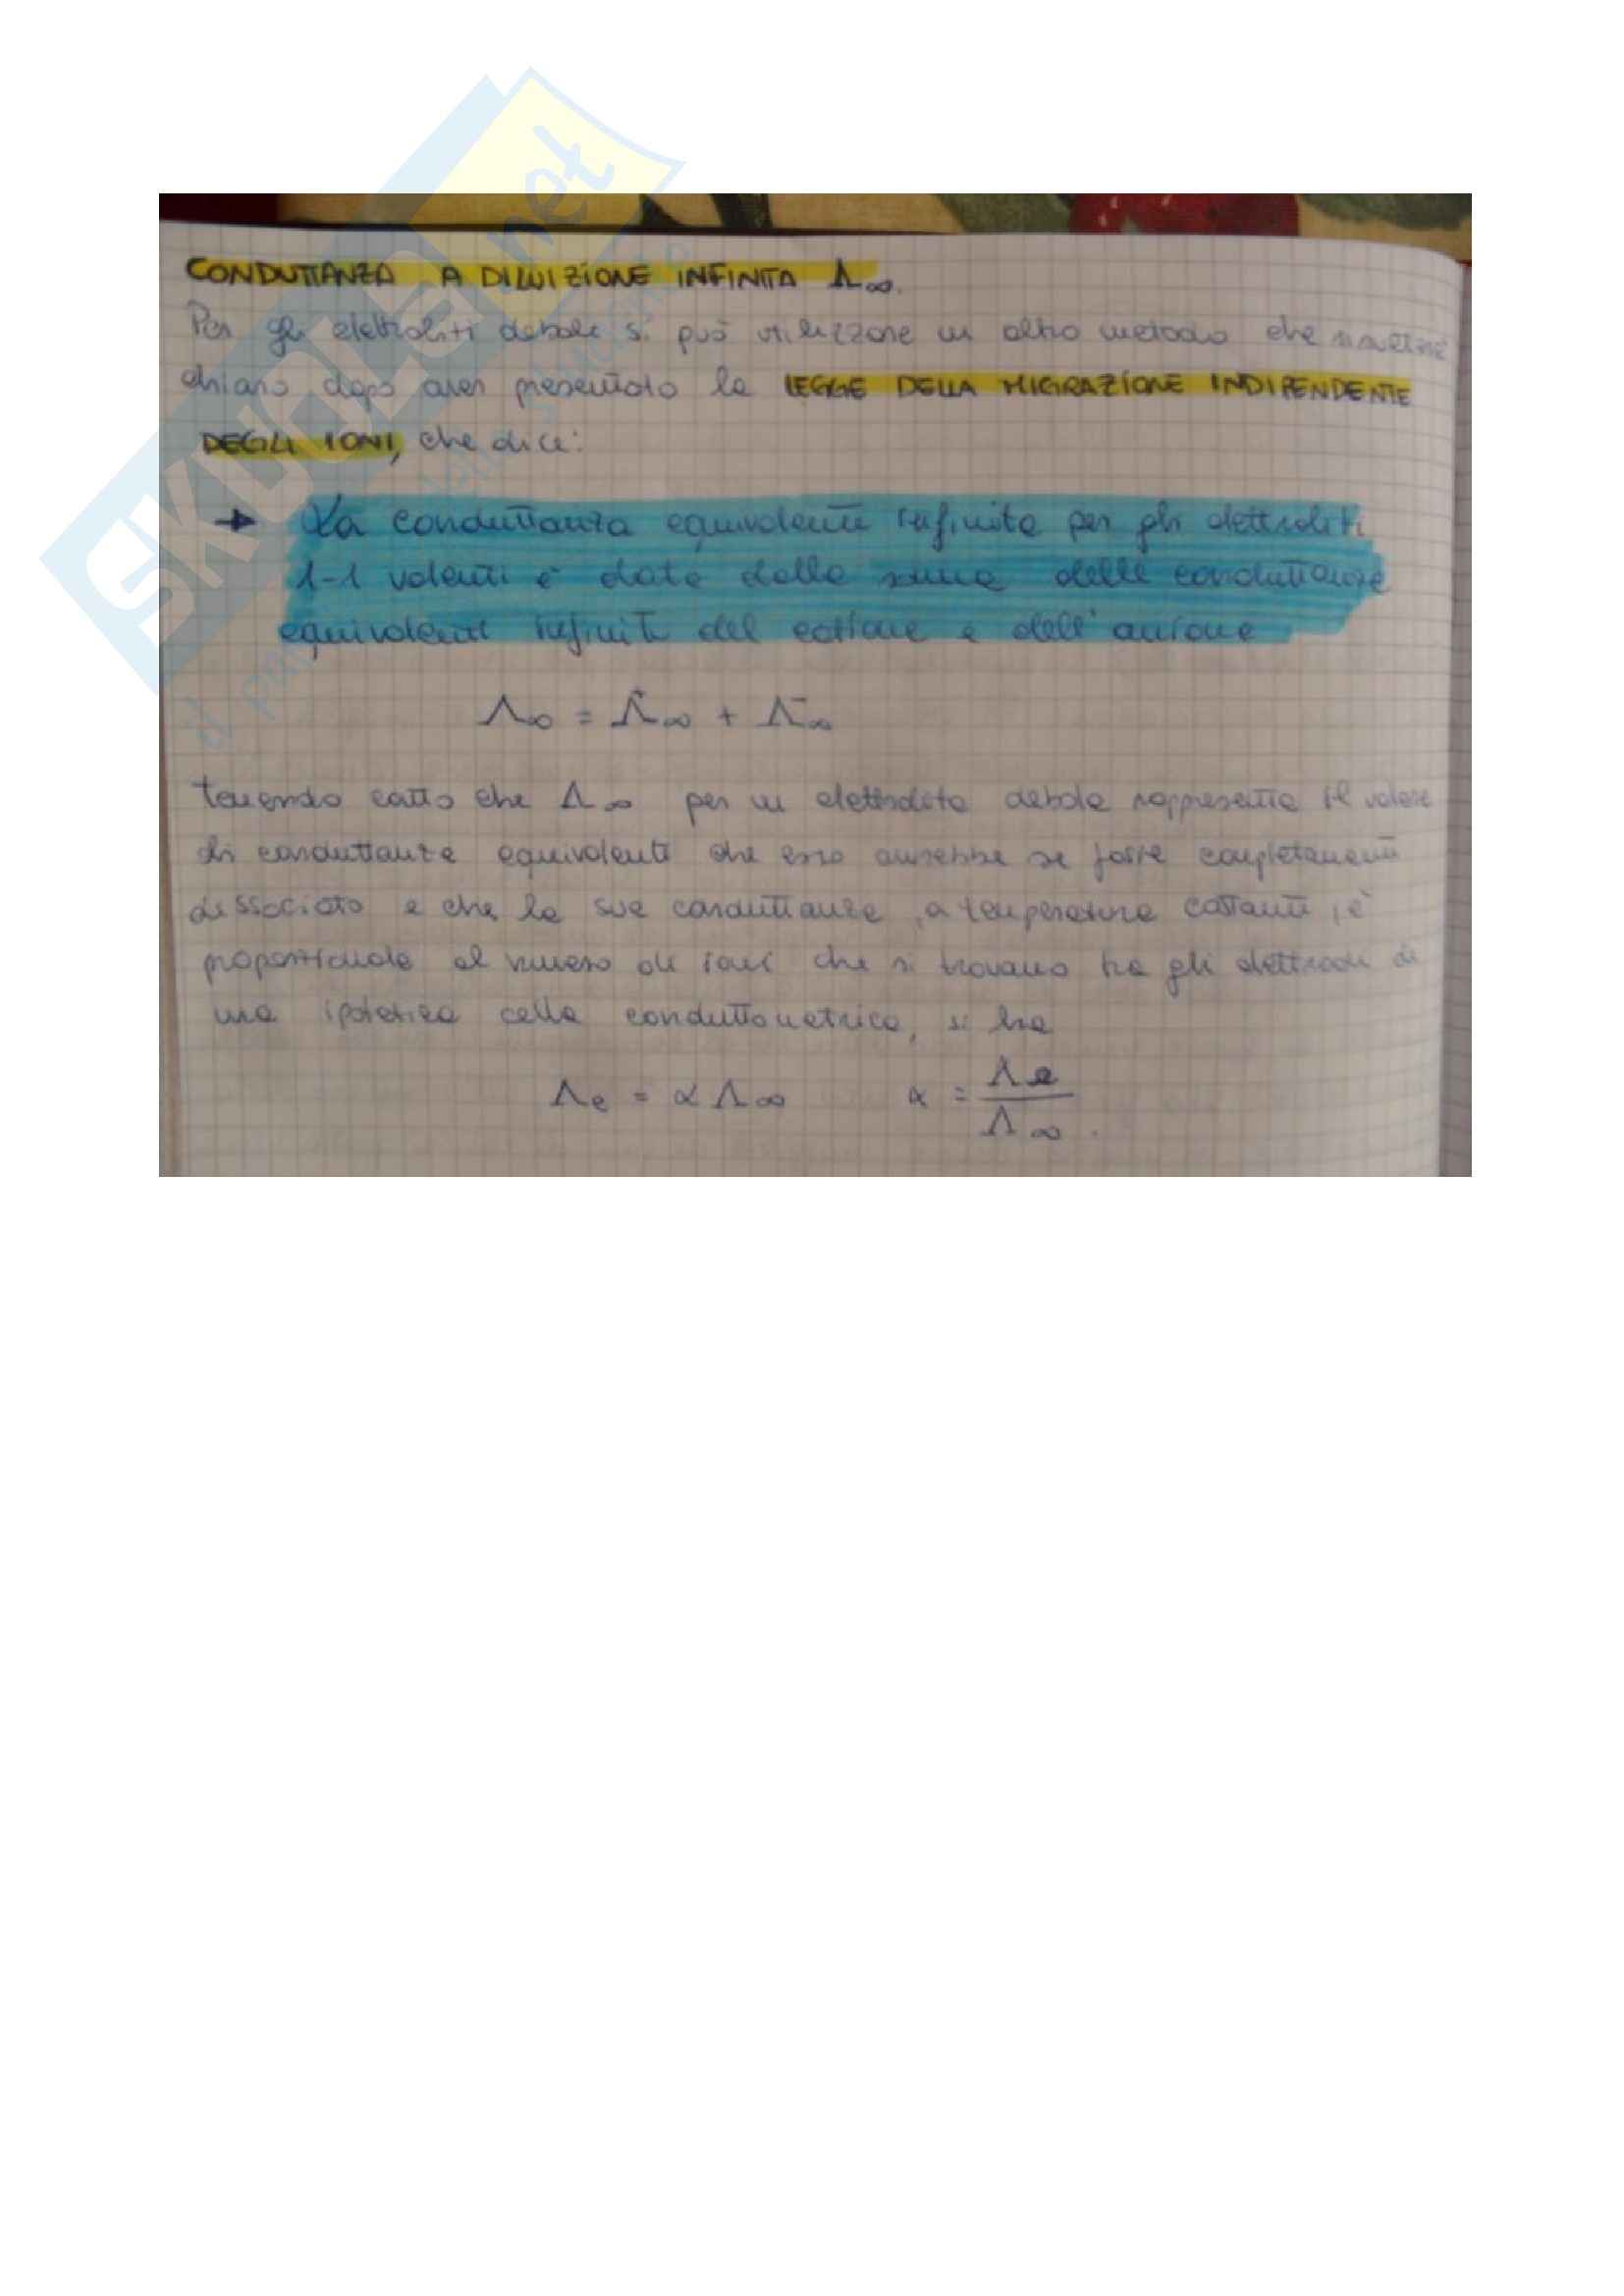 CONDUTTANZA A DILUIZIONE INFINITA Λ∞.
Per gli elettroliti debole si può utilizzare un altro metodo che risulterà
chiaro dopo aver presentato la LEGGE DELLA MIGRAZIONE INDIPENDENTE
DEGLI IONI, che dice:
→ La conduttanza equivalente infinita per gli elettroliti
1-1 valenti è data dalla somma delle conduttanze
equivalenti infiniti del catione e dell'anione
Λ∞ = Λ⁺∞ + Λ⁻∞
tenendo conto che Λ∞ per un elettrolita debole rappresenta il valore
di conduttanza equivalente che esso avrebbe se fosse completamente
dissociato e che la sua conduttanza, a temperatura costante, è
proporzionale al numero di ioni che si trovano tra gli elettrodi di
una ipotetica cella conduttometrica, si ha
Λe = α Λ∞ α = Λe / Λ∞.
SKUOLA.net